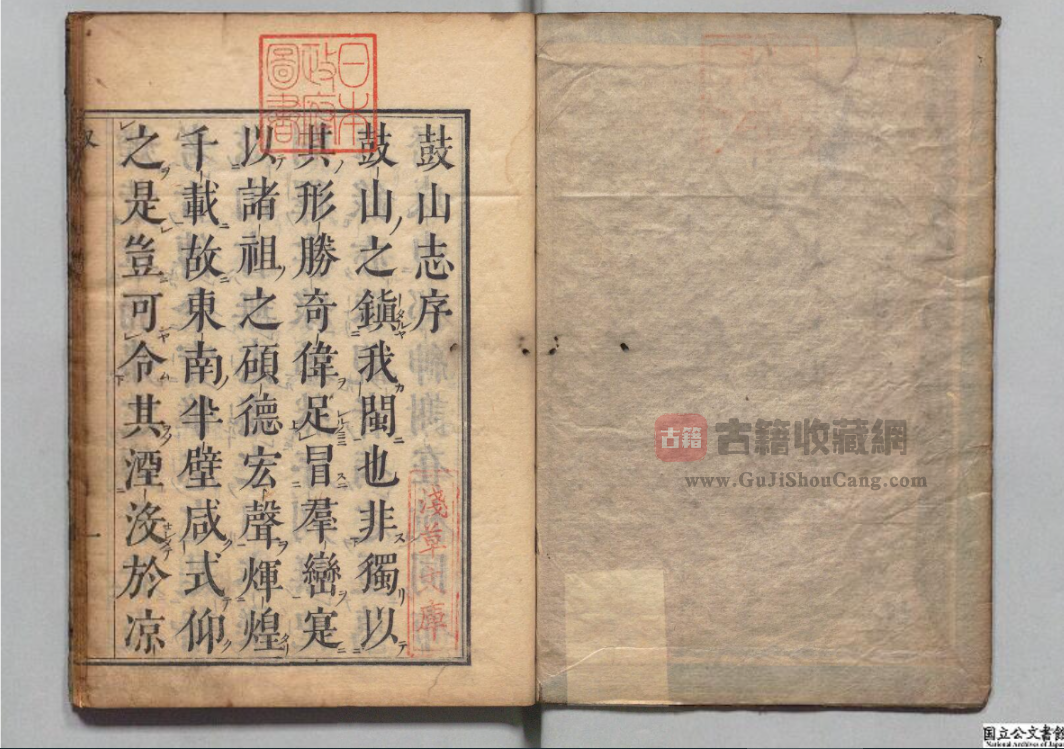 日本
政府
圖書
鼓山志序
鼓山之鎭我閩也非獨以
其形勝奇偉足冒羣巒寔
以諸祖之碩德宏聲煇煌
千載故東南半壁咸式仰
之是豈可令其湮沒於凉
一
淺草文庫
古籍
古籍收藏網
www.GuJiShouCang.com
国立公文書館
National Archives of Japan